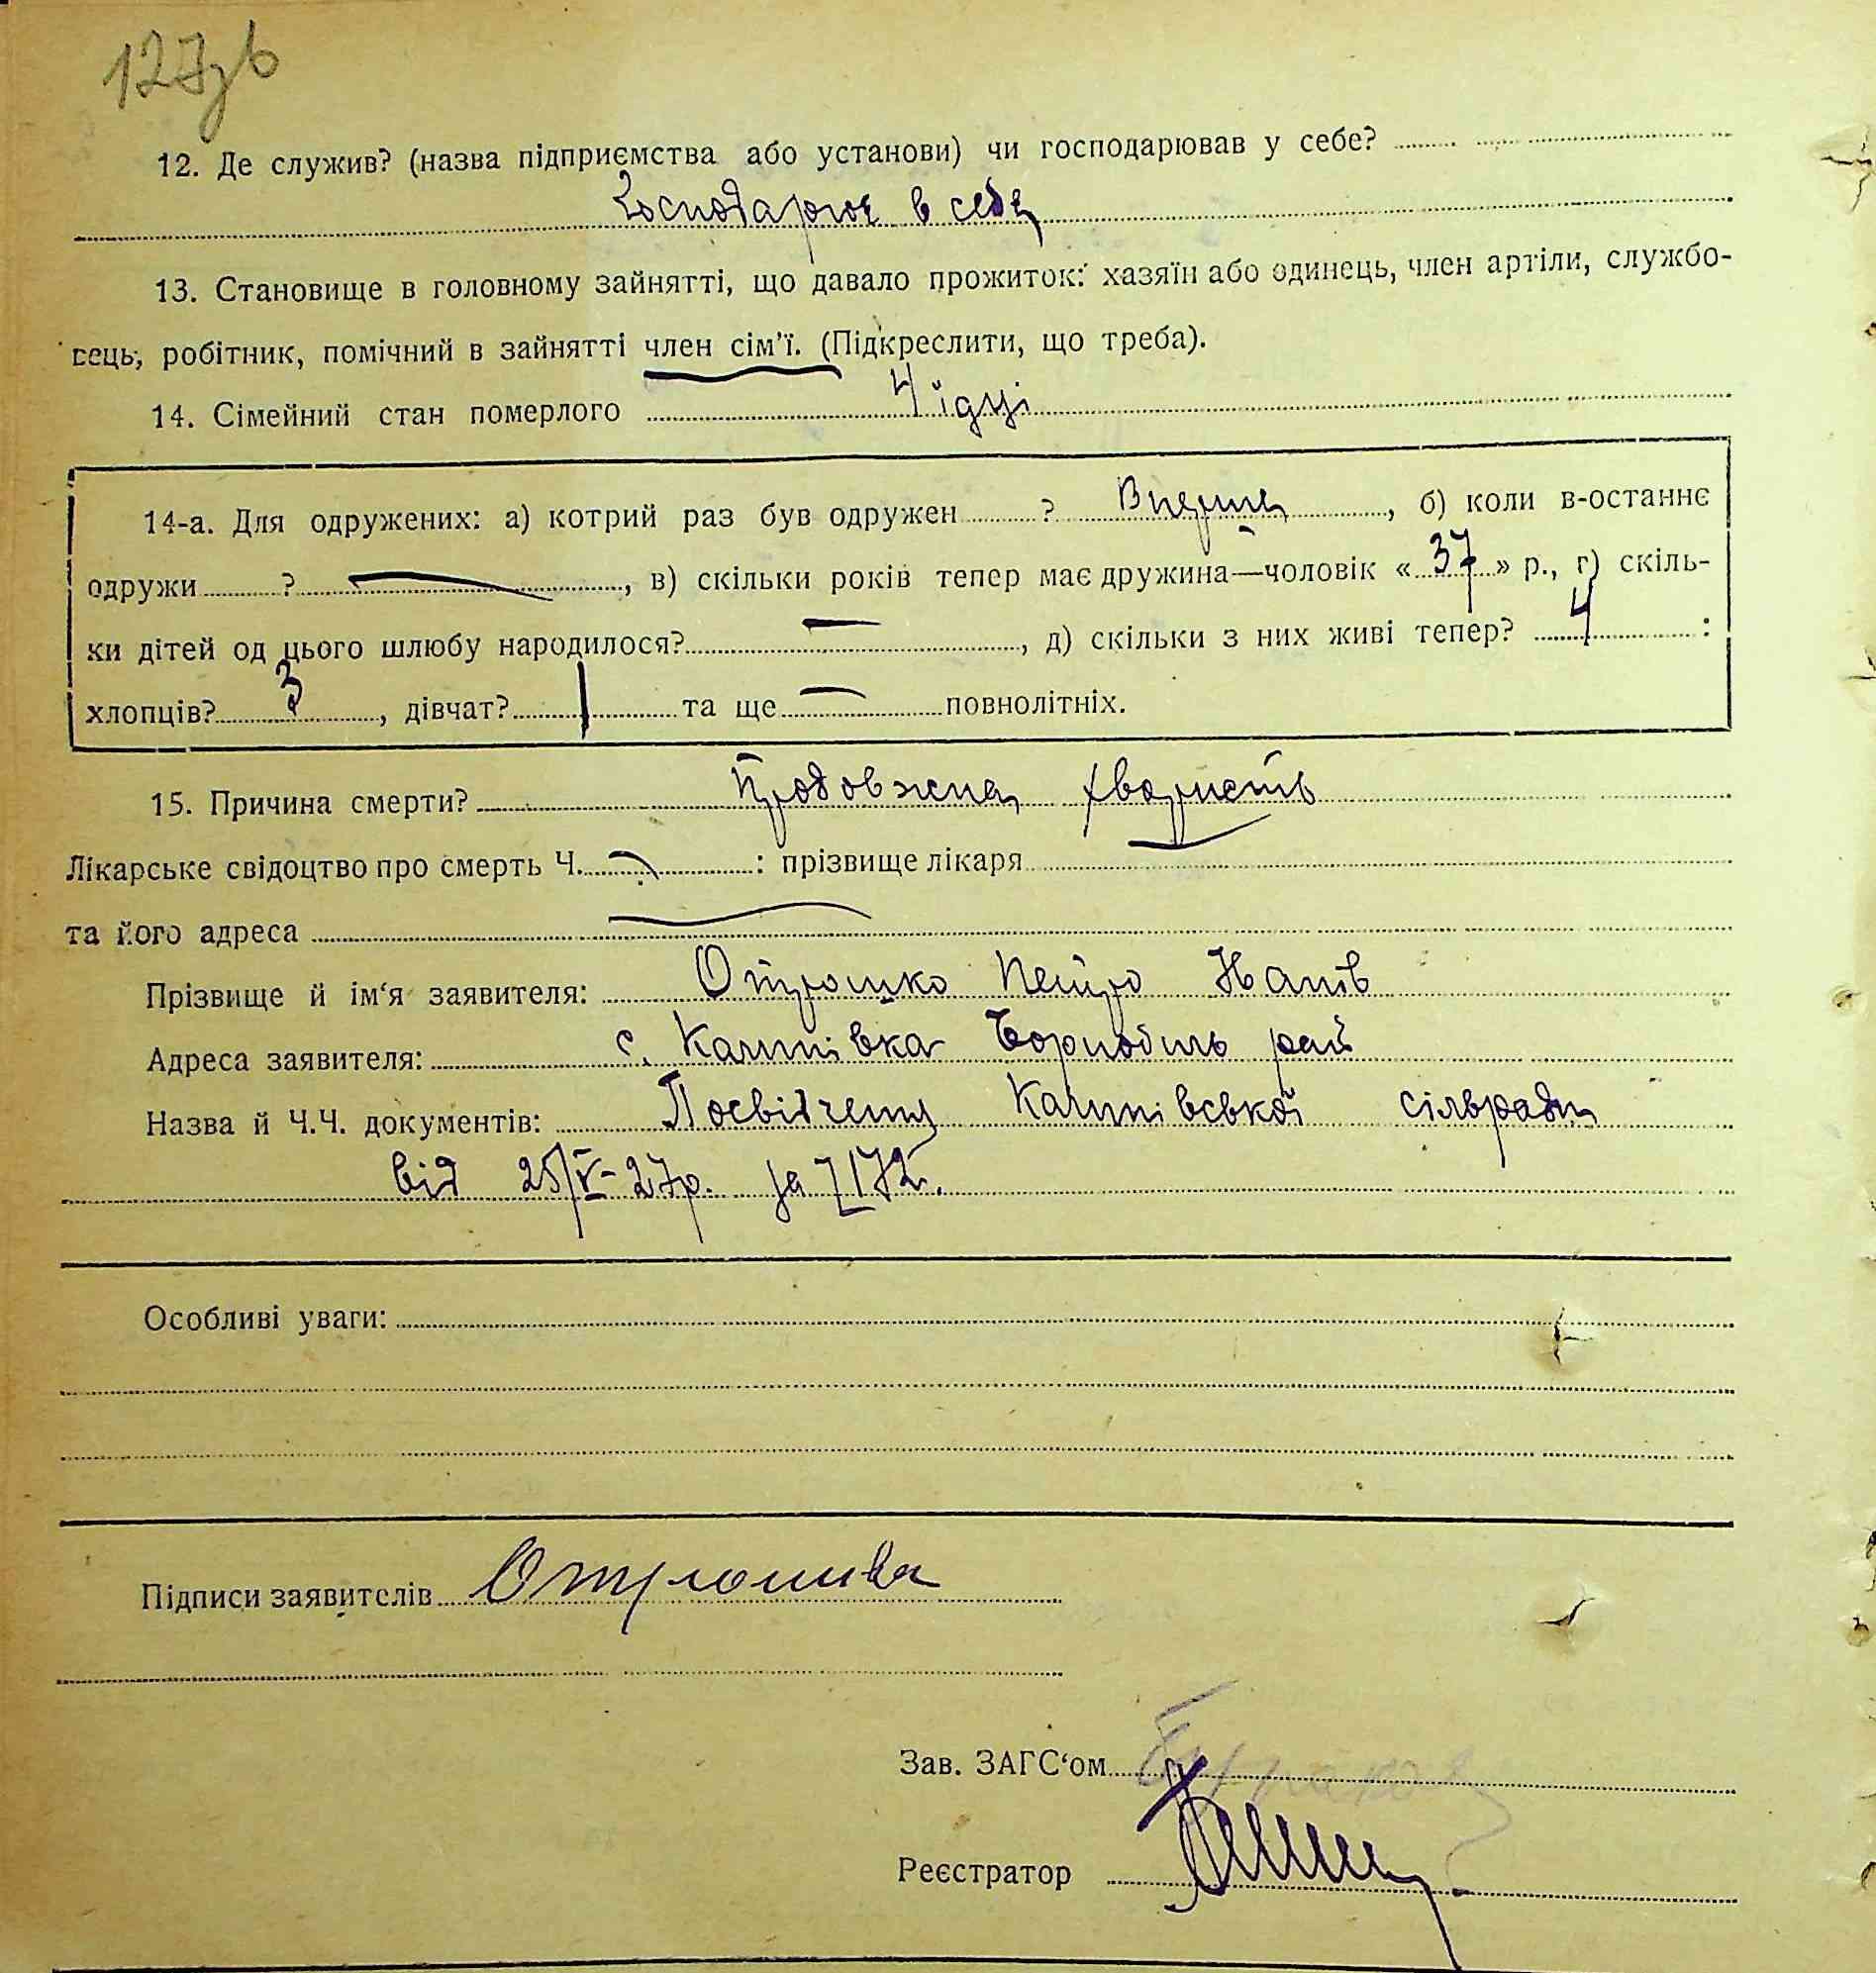 127зв
12. Де служив? (назва підприємства або установи) чи господарював у себе?
Господарює в себе
13. Становище в головному зайнятті, що давало прожиток: хазяїн або одинець, член артіли, службо-
вець, робітник, помічний в зайнятті член сім'ї. (Підкреслити, що треба).
14. Сімейний стан померлого 4 їдці
14-а. Для одружених: а) котрий раз був одружен ? Вперше, б) коли в-останнє
одружи ? —, в) скільки років тепер має дружина—чоловік «37» р., г) скіль-
ки дітей од цього шлюбу народилося? —, д) скільки з них живі тепер? 4 :
хлопців? 3, дівчат? 1 та ще — повнолітніх.
15. Причина смерти? Продовжена хворість
Лікарське свідоцтво про смерть Ч. — : прізвище лікаря
та його адреса —
Прізвище й ім'я заявителя: Отрошко Петро
Адреса заявителя: с. Калинівка Чорнобиль рай
Назва й Ч.Ч. документів: Посвідчення Калинівської сільради
від 25/V-27р. за 172.
Особливі уваги:
Підписи заявителів
Зав. ЗАГС'ом
Реєстратор